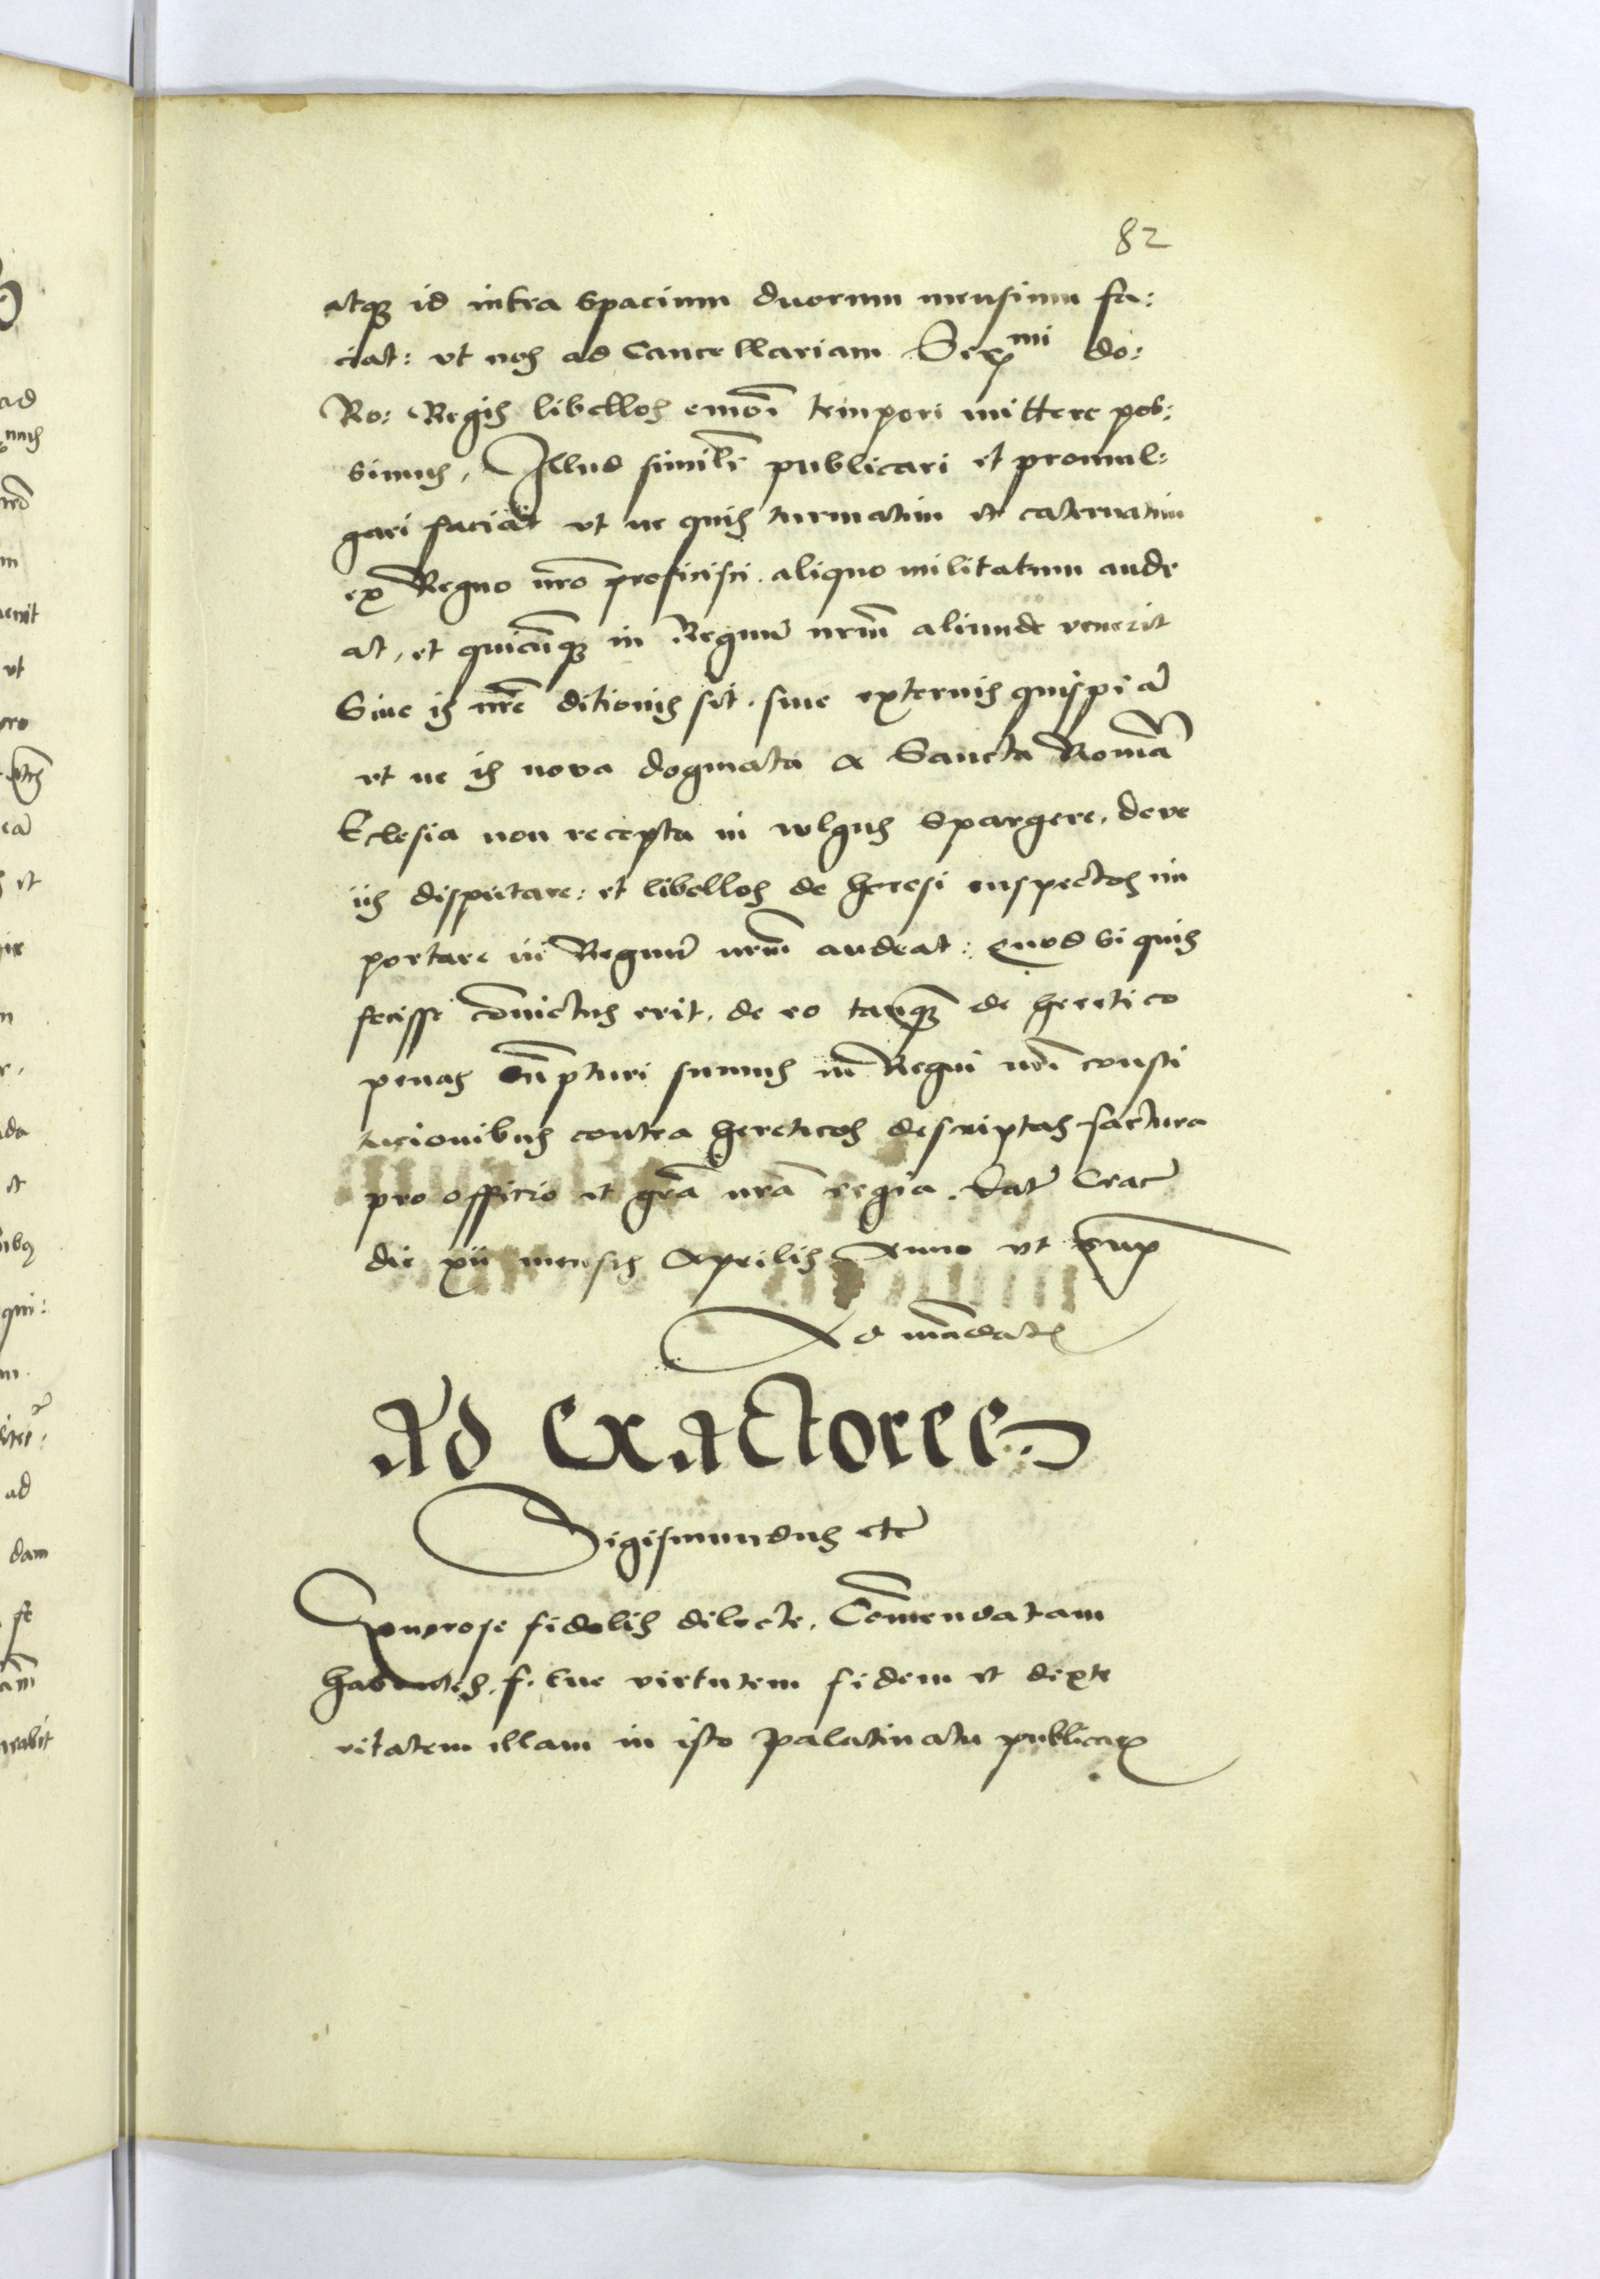 82
atq₃ id intra spacium duorum mensium fa:
ciat: vt nos ad Cancellariam Serᵐⁱ do:
Ro: Regis libellos emoī tempori mittere pos:
simus, Illud simil̄r publicari et promul:
gari faciāt vt ne quis turmatim et caternatim
ex Regno nr̄o proficisci aliquo militatum aude
at, et quicūq₃ in Regnū nrm̄ aliunde venerit
Siue is nrē ditionis sit, siue externis quispiā
vt ne is nova dogmata a Sancta Romā
Eclesia non recepta in wlgus spargere, deve
iis disputare: et libellos de heresi suspectos im
portare in Regnū nrm̄ audeat: Quod si quis
fecisse cōuictus erit, de eo tanq₃ de heretico
penas sūpturi sumus in Regni nr̄i consti
tucionibus contra hereticos descriptas factura
pro officio et gr̄a nrā regia. Dat̄ Crac̄
die xii mensis Aprilis Anno vt supͣ
Ad mādatꝭ
Ad Exactores
Sigismundus etc̄
Generose fidelis dilecte. Cōmendatam
habentes, f. tue virtutem fidem et dexte
ritatem illam in isto palatinatu publicaꝝ